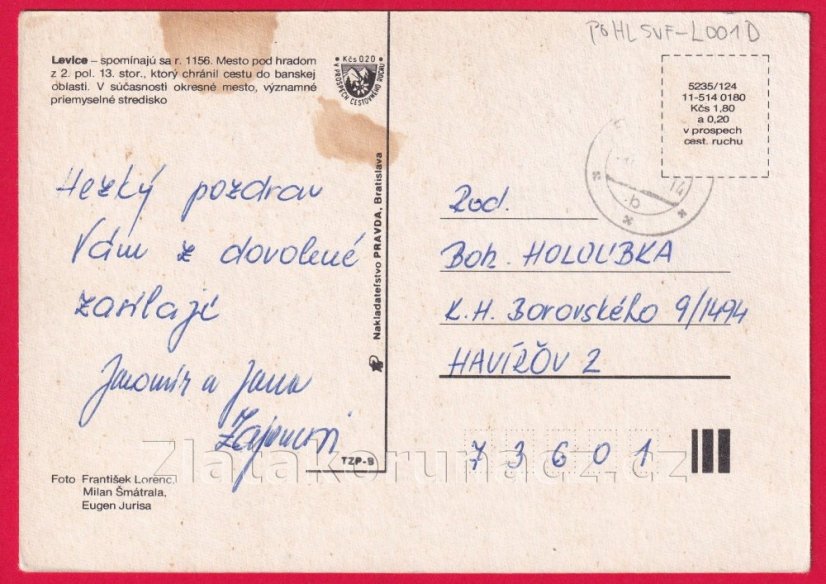 PSHLSVF-L001D
Levice – spomínajú sa r. 1156. Mesto pod hradom
z 2. pol. 13. stor., ktorý chránil cestu do banskej
oblasti. V súčasnosti okresné mesto, významné
priemyselné stredisko
Kčs 0,20
V PROSPECH CESTOVNÉHO RUCHU
5235/124
11-514 0180
Kčs 1,80
a 0,20
v prospech
cest. ruchu
Hezký pozdrav
Vám z dovolené
zasílají
Jaromír a Jana
Nakladateľstvo PRAVDA, Bratislava
Rod.
Boh. HOLOUBKA
K. H. Borovského 9/1494
HAVÍŘOV 2
73601
TZP-9
Zlatakorunacz.cz
Foto František Lorenc,
Milan Šmátrala,
Eugen Jurisa